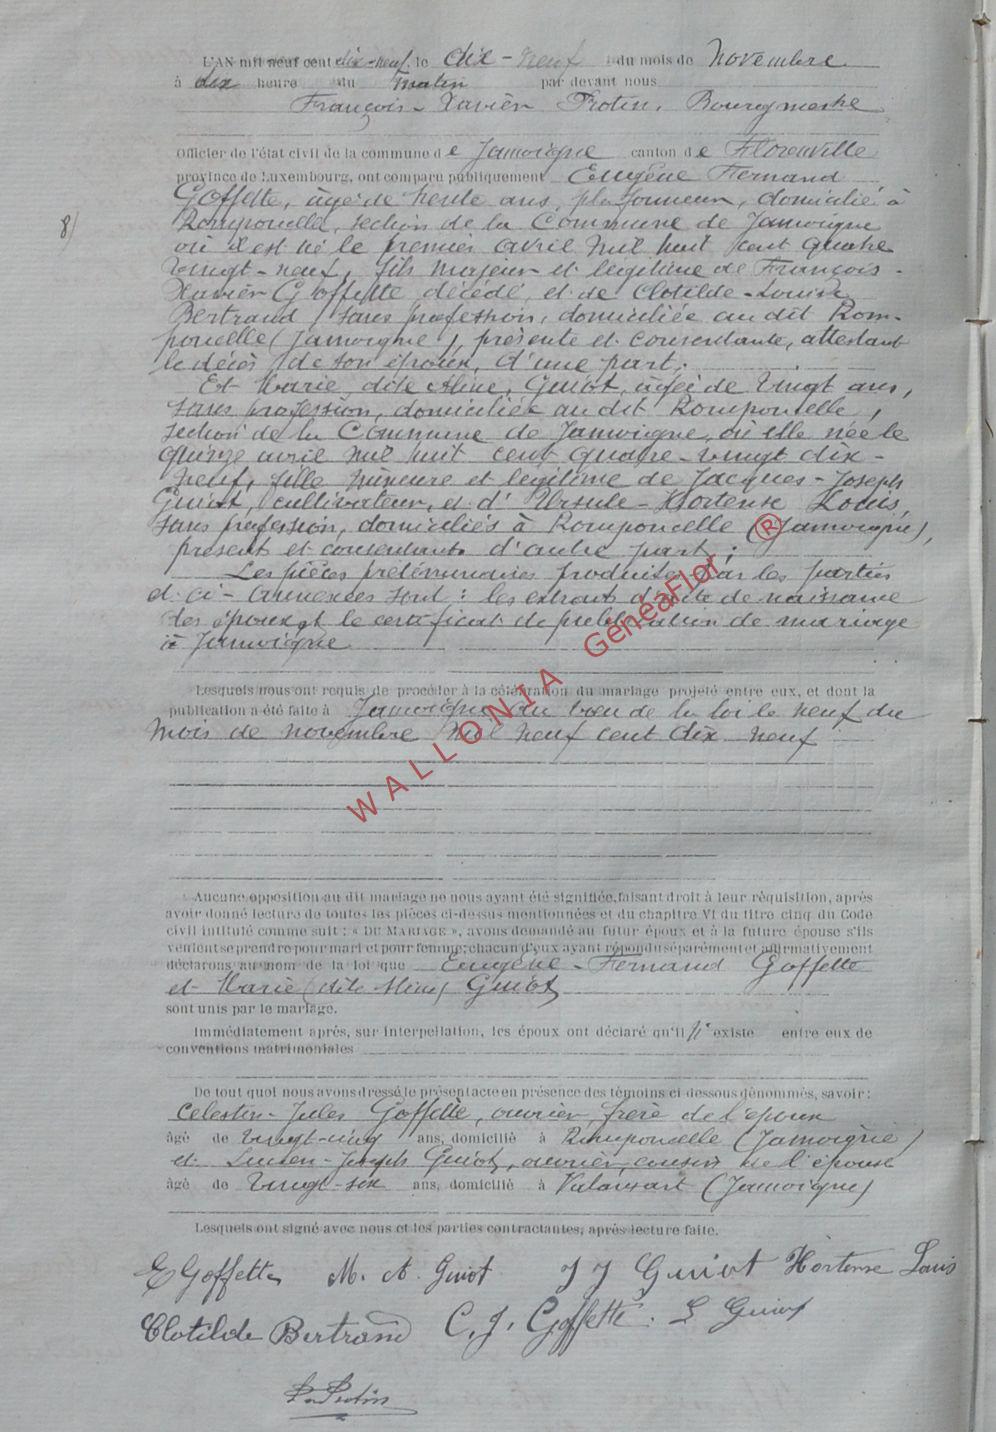 L'AN mil neuf cent dix-neuf, le dix-neuf du mois de Novembre
à dix heure du matin par devant nous
François-Xavier Protin, Bourgmestre
Officier de l'état civil de la commune de Jamoigne canton de Florenville
province de Luxembourg, ont comparu publiquement Eugène Fernand
Goffette, âgé de trente ans, plafonneur, domicilié à
8/ Romponcelle, section de la Commune de Jamoigne
où il est né le premier avril mil huit cent quatre
vingt-neuf, fils majeur et légitime de François-
Xavier Goffette décédé, et de Clotilde-Louise
Bertrand, sans profession, domiciliée au dit Rom-
poncelle (Jamoigne), présente et consentante, attestant
le décès de son époux, d'une part;
Et Marie dite Aline, Guiot, âgée de vingt ans,
sans profession, domiciliée au dit Romponcelle,
section de la Commune de Jamoigne, où elle née le
quinze avril mil huit cent quatre-vingt dix-
neuf, fille mineure et légitime de Jacques-Joseph
Guiot, cultivateur, et d'Ursule-Hortense Louis,
sans profession, domiciliés à Romponcelle (Jamoigne),
présents et consentants d'autre part;
Les pièces préliminaires produites par les parties
et ci-annexées sont: les extraits d'acte de naissance
des époux et le certificat de publication de mariage
à Jamoigne
Lesquels nous ont requis de procéder à la célébration du mariage projeté entre eux, et dont la
publication a été faite à Jamoigne au vœu de la loi le neuf du
mois de novembre mil neuf cent dix neuf
WALLONIA GeneaFlor ®
Aucune opposition au dit mariage ne nous ayant été signifiée, faisant droit à leur réquisition, après
avoir donné lecture de toutes les pièces ci-dessus mentionnées et du chapitre VI du titre cinq du Code
civil intitulé comme suit: « DU MARIAGE », avons demandé au futur époux et à la future épouse s'ils
veulent se prendre pour mari et pour femme; chacun d'eux ayant répondu séparément et affirmativement
déclarons au nom de la loi que Eugène-Fernand Goffette
et Marie (dite Aline) Guiot
sont unis par le mariage.
Immédiatement après, sur interpellation, les époux ont déclaré qu'il n'existe entre eux de
conventions matrimoniales
De tout quoi nous avons dressé le présent acte en présence des témoins ci-dessous dénommés, savoir:
Célestin-Jules Goffette, ouvrier, frère de l'époux
âgé de vingt-cinq ans, domicilié à Romponcelle (Jamoigne)
et Lucien-Joseph Guiot, ouvrier, cousin de l'épouse
âgé de vingt-six ans, domicilié à Valansart (Jamoigne)
Lesquels ont signé avec nous et les parties contractantes, après lecture faite.
E Goffette M. A. Guiot J J Guiot Hortense Louis
Clotilde Bertrand C. J. Goffette. L Guiot
Protin